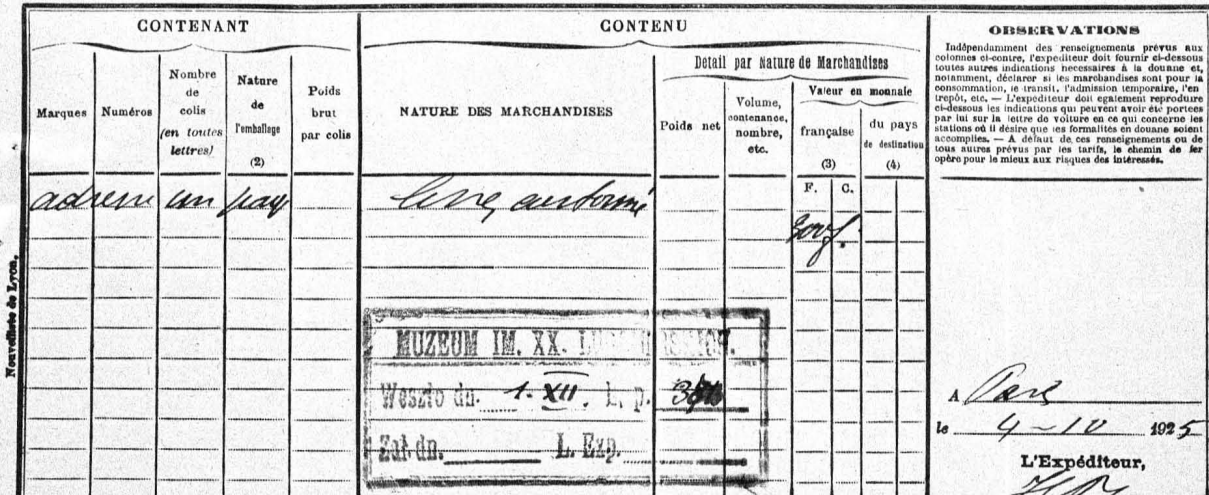 CONTENANT
CONTENU
Marques
Numéros
Nombre
de
colis
(en toutes
lettres)
Nature
de
l'emballage
(2)
Poids
brut
par colis
NATURE DES MARCHANDISES
Détail par Nature de Marchandises
Poids net
Volume,
contenance,
nombre,
etc.
Valeur en monnaie
française
(3)
du pays
de destination
(4)
F. C.
adresse un paq
MUZEUM IM. XX.
Weszło dn. 1. XII. L. p.
Zał. dn. L. Exp.
Nouvelliste de Lyon.
OBSERVATIONS
Indépendamment des renseignements prévus aux
colonnes ci-contre, l'expéditeur doit fournir ci-dessous
toutes autres indications nécessaires à la douane et,
notamment, déclarer si les marchandises sont pour la
consommation, le transit, l'admission temporaire, l'en
trepôt, etc. — L'expéditeur doit également reproduire
ci-dessous les indications qui peuvent avoir été portées
par lui sur la lettre de voiture en ce qui concerne les
stations où il désire que les formalités en douane soient
accomplies. — A défaut de ces renseignements ou de
tous autres prévus par les tarifs, le chemin de fer
opère pour le mieux aux risques des intéressés.
A Paris
le 4-10 1925
L'Expéditeur,